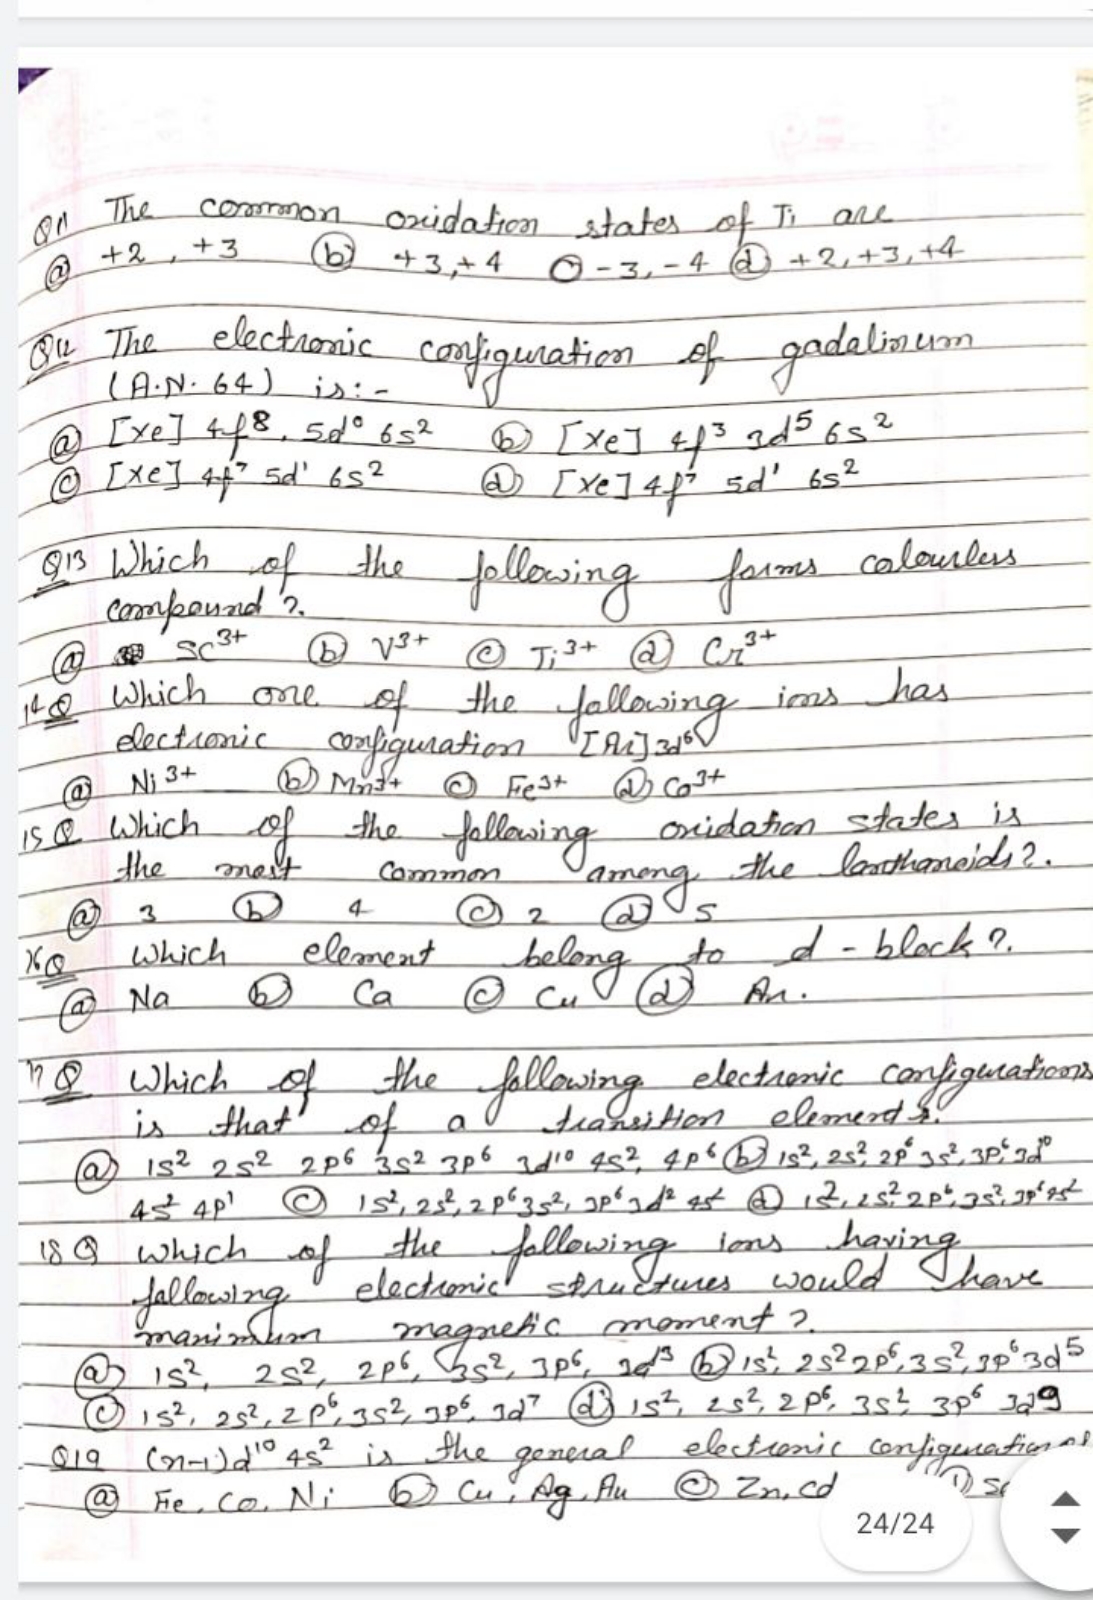 Q11 The common oxidation states of Ti are
(a) +2, +3 (b) +3,+4 (c) -3,-4 (d) +2,+3,+4
Q12 The electronic configuration of gadalinum
(A.N. 64) is:-
(a) [Xe] 4f8, 5d° 6s² (b) [Xe] 4f³ 3d⁵ 6s²
(c) [Xe] 4f⁷ 5d¹ 6s² (d) [Xe] 4f⁷ 5d¹ 6s²
Q13 Which of the following forms colourless
compound?
(a) Sc³⁺ (b) V³⁺ (c) Ti³⁺ (d) Cr³⁺
14 Q Which one of the following ions has
electronic configuration [Ar]3d⁶
(a) Ni³⁺ (b) Mn³⁺ (c) Fe³⁺ (d) Co³⁺
15 Q Which of the following oxidation states is
the most common among the lanthanoids?
(a) 3 (b) 4 (c) 2 (d) 5
16 Q Which element belong to d-block?
(a) Na (b) Ca (c) Cu (d) Ar.
17 Q Which of the following electronic configurations
is that of a transition element?
(a) 1s² 2s² 2p⁶ 3s² 3p⁶ 3d¹⁰ 4s², 4p⁶ (b) 1s², 2s², 2p⁶ 3s², 3p⁶, 3d¹⁰
4s² 4p¹ (c) 1s², 2s², 2p⁶ 3s², 3p⁶ 3d² 4s² (d) 1s², 2s² 2p⁶, 3s², 3p⁶ 4s²
18 Q Which of the following ions having
following electronic structures would have
maximum magnetic moment?
(a) 1s², 2s², 2p⁶, 3s², 3p⁶, 3d³ (b) 1s², 2s² 2p⁶, 3s², 3p⁶ 3d⁵
(c) 1s², 2s², 2p⁶, 3s², 3p⁶, 3d⁷ (d) 1s², 2s², 2p⁶, 3s² 3p⁶ 3d⁹
Q19 (n-1)d¹⁰ 4s² is the general electronic configuration of
(a) Fe, Co, Ni (b) Cu, Ag, Au (c) Zn, Cd
24/24